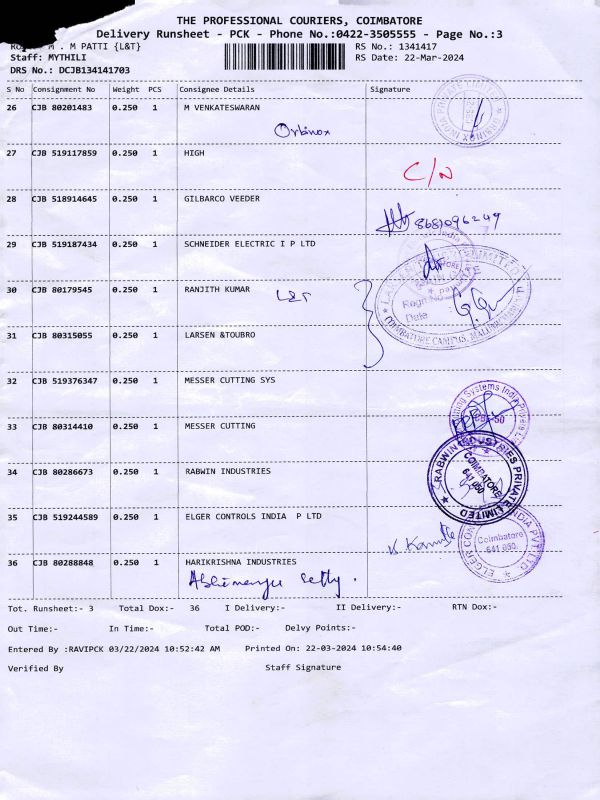 THE PROFESSIONAL COURIERS, COIMBATORE
Delivery Runsheet - PCK - Phone No.:0422-3505555 - Page No.:3
M . M PATTI {L&T} RS No.: 1341417
Staff: MYTHILI RS Date: 22-Mar-2024
DRS No.: DCJB134141703
S No Consignment No Weight PCS Consignee Details Signature
26 CJB 80201483 0.250 1 M VENKATESWARAN
Orbinox
27 CJB 519117859 0.250 1 HIGH
C/N
28 CJB 518914645 0.250 1 GILBARCO VEEDER
8681096249
29 CJB 519187434 0.250 1 SCHNEIDER ELECTRIC I P LTD
30 CJB 80179545 0.250 1 RANJITH KUMAR
L&T
Regn No
Date
COIMBATORE CAMPUS,
31 CJB 80315055 0.250 1 LARSEN &TOUBRO
32 CJB 519376347 0.250 1 MESSER CUTTING SYS
33 CJB 80314410 0.250 1 MESSER CUTTING
34 CJB 80286673 0.250 1 RABWIN INDUSTRIES
RABWIN INDUSTRIES PRIVATE LIMITED
COIMBATORE
641 050
35 CJB 519244589 0.250 1 ELGER CONTROLS INDIA P LTD
Coimbatore
641 050
36 CJB 80288848 0.250 1 HARIKRISHNA INDUSTRIES
Tot. Runsheet:- 3 Total Dox:- 36 I Delivery:- II Delivery:- RTN Dox:-
Out Time:- In Time:- Total POD:- Delvy Points:-
Entered By :RAVIPCK 03/22/2024 10:52:42 AM Printed On: 22-03-2024 10:54:40
Verified By Staff Signature